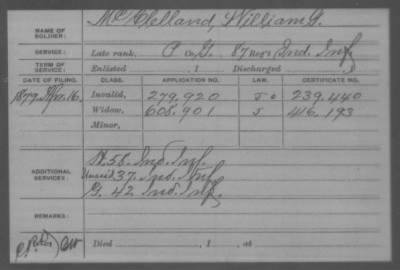 NAME OF SOLDIER: McClelland, William G.
SERVICE: Late rank, P Co. G. 87 Reg't Ind. Inf
TERM OF SERVICE: Enlisted , 1 Discharged
DATE OF FILING. CLASS. APPLICATION NO. LAW. CERTIFICATE NO.
1879 Apr. 16. Invalid, 279.920 239.440
Widow, 605.901 416.193
Minor,
ADDITIONAL SERVICES: H. 55. Ind. Inf.
37. Ind. Inf
G. 42 Ind. Inf.
REMARKS:
Died , 1 , at